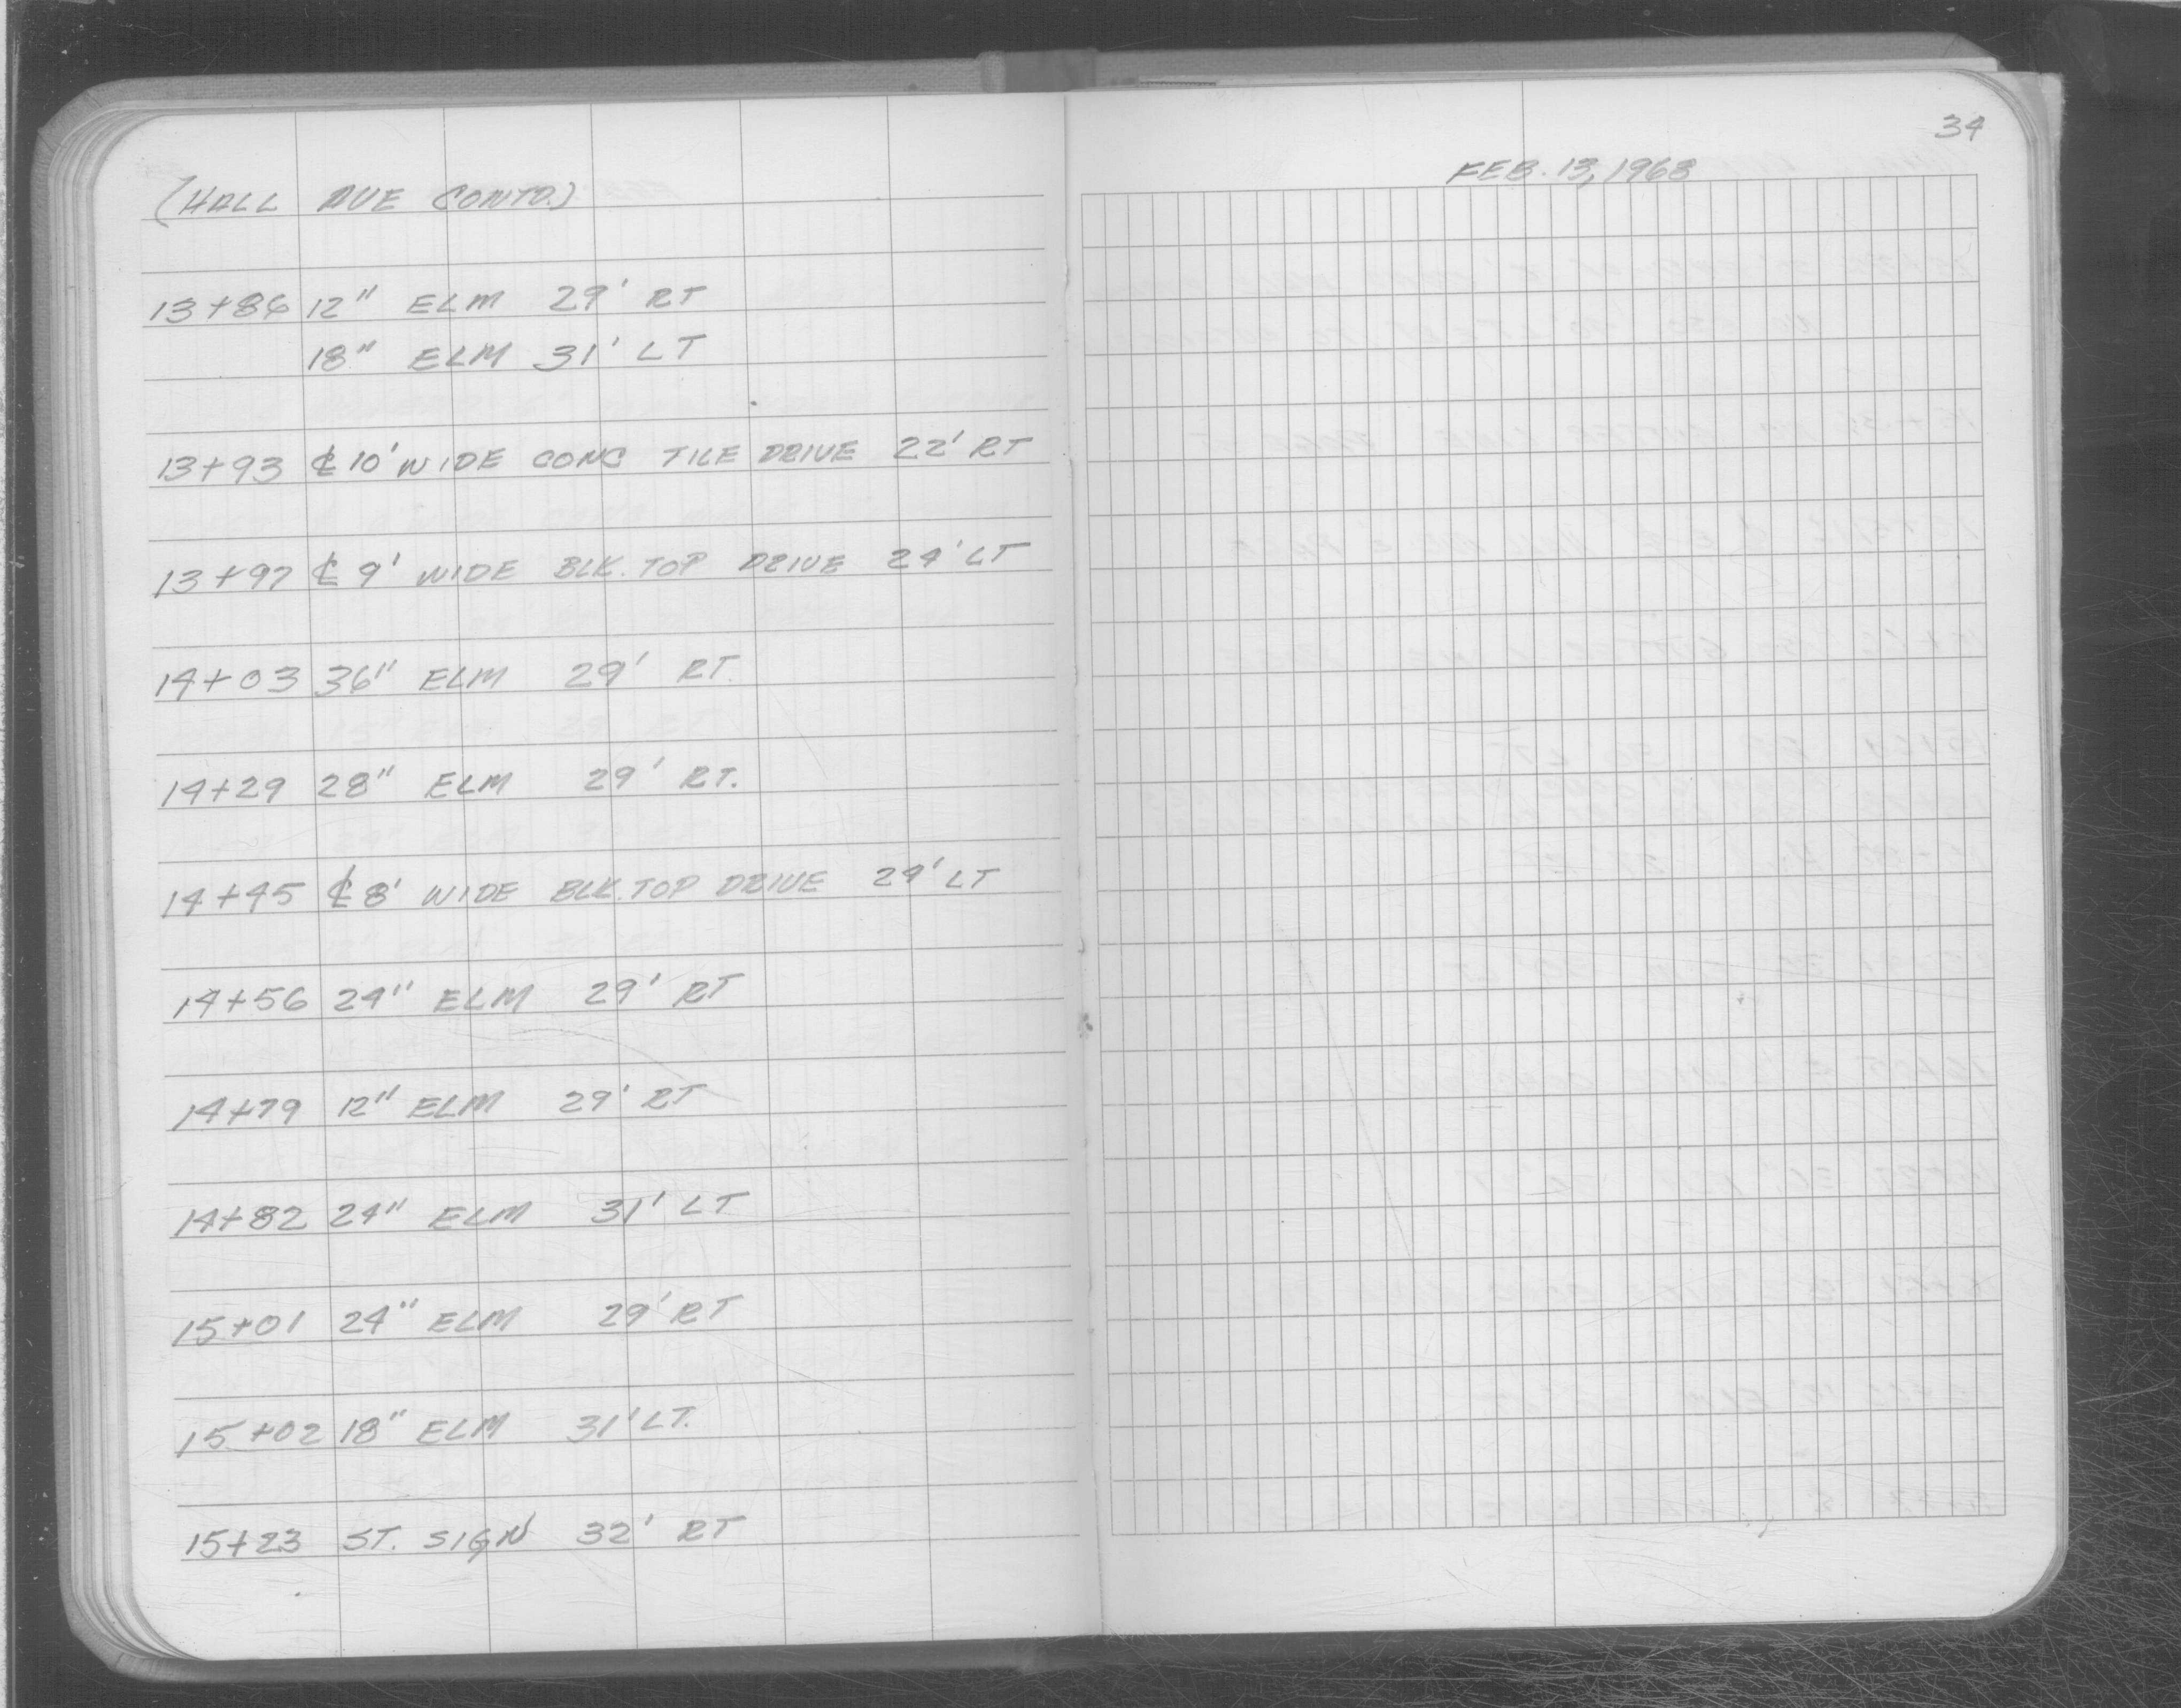 34
FEB. 13, 1968
(HALL AVE CONTD.)
13+86 12" ELM 29' RT
18" ELM 31' LT
13+93 ℄ 10' WIDE CONC TILE DRIVE 22' RT
13+97 ℄ 9' WIDE BLK. TOP DRIVE 24' LT
14+03 36" ELM 29' RT.
14+29 28" ELM 29' RT.
14+45 ℄ 8' WIDE BLK. TOP DRIVE 24' LT
14+56 24" ELM 29' RT
14+79 12" ELM 29' RT
14+82 24" ELM 31' LT
15+01 24" ELM 29' RT
15+02 18" ELM 31' LT.
15+23 ST. SIGN 32' RT